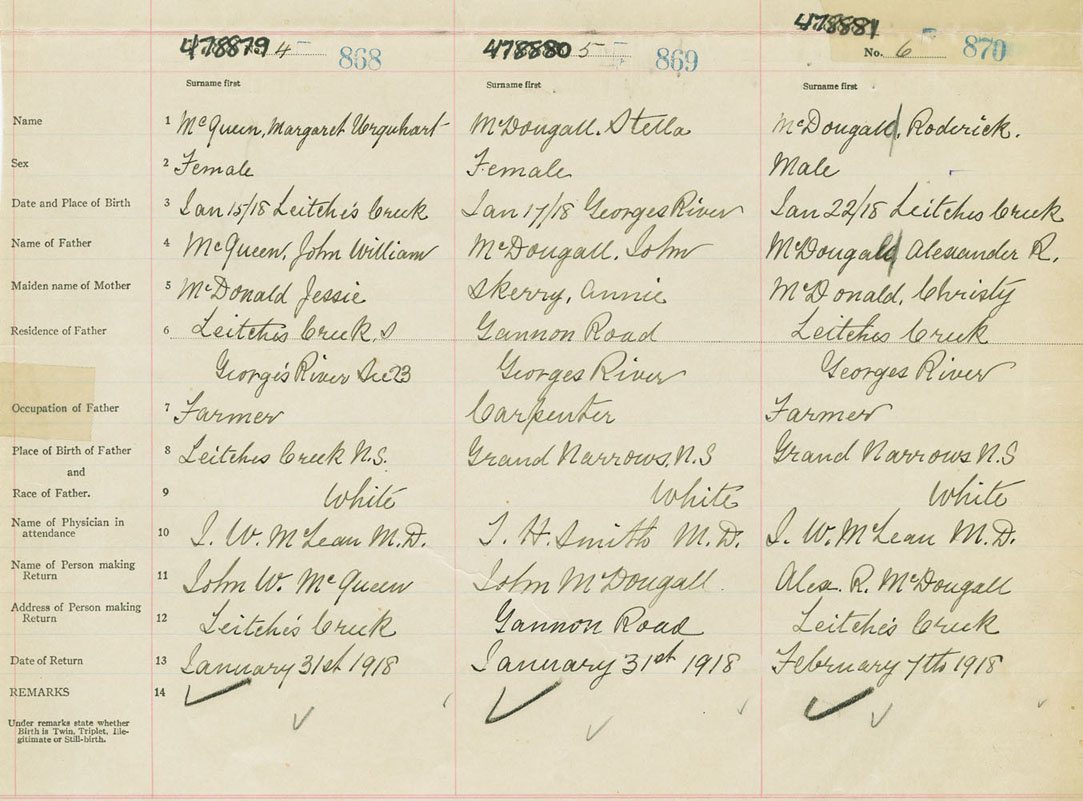 478879 4 868 478880 5 869 478881 No. 6 870
Surname first Surname first Surname first
Name 1 McQueen, Margaret Urquhart McDougall, Stella McDougall, Roderick.
Sex 2 Female Female Male
Date and Place of Birth 3 Jan 15/18 Leitche's Creek Jan 17/18 Georges River Jan 22/18 Leitches Creek
Name of Father 4 McQueen, John William McDougall, John McDougall, Alexander R.
Maiden name of Mother 5 McDonald Jessie Skerry, Annie McDonald, Christy
Residence of Father 6 Leitches Creek Gannon Road Leitches Creek
George's River Dec 23 Georges River Georges River
Occupation of Father 7 Farmer Carpenter Farmer
Place of Birth of Father 8 Leitches Creek N.S. Grand Narrows, N.S Grand Narrows N.S
and
Race of Father. 9 White White White
Name of Physician in
attendance 10 J. W. McLean M.D. T. H. Smith M.D. J. W. McLean M.D.
Name of Person making
Return 11 John W. McQueen John McDougall Alex. R. McDougall
Address of Person making
Return 12 Leitche's Creek Gannon Road Leitche's Creek
Date of Return 13 January 31st 1918 January 31st 1918 February 7th 1918
REMARKS 14
Under remarks state whether
Birth is Twin, Triplet, Ille-
gitimate or Still-birth.